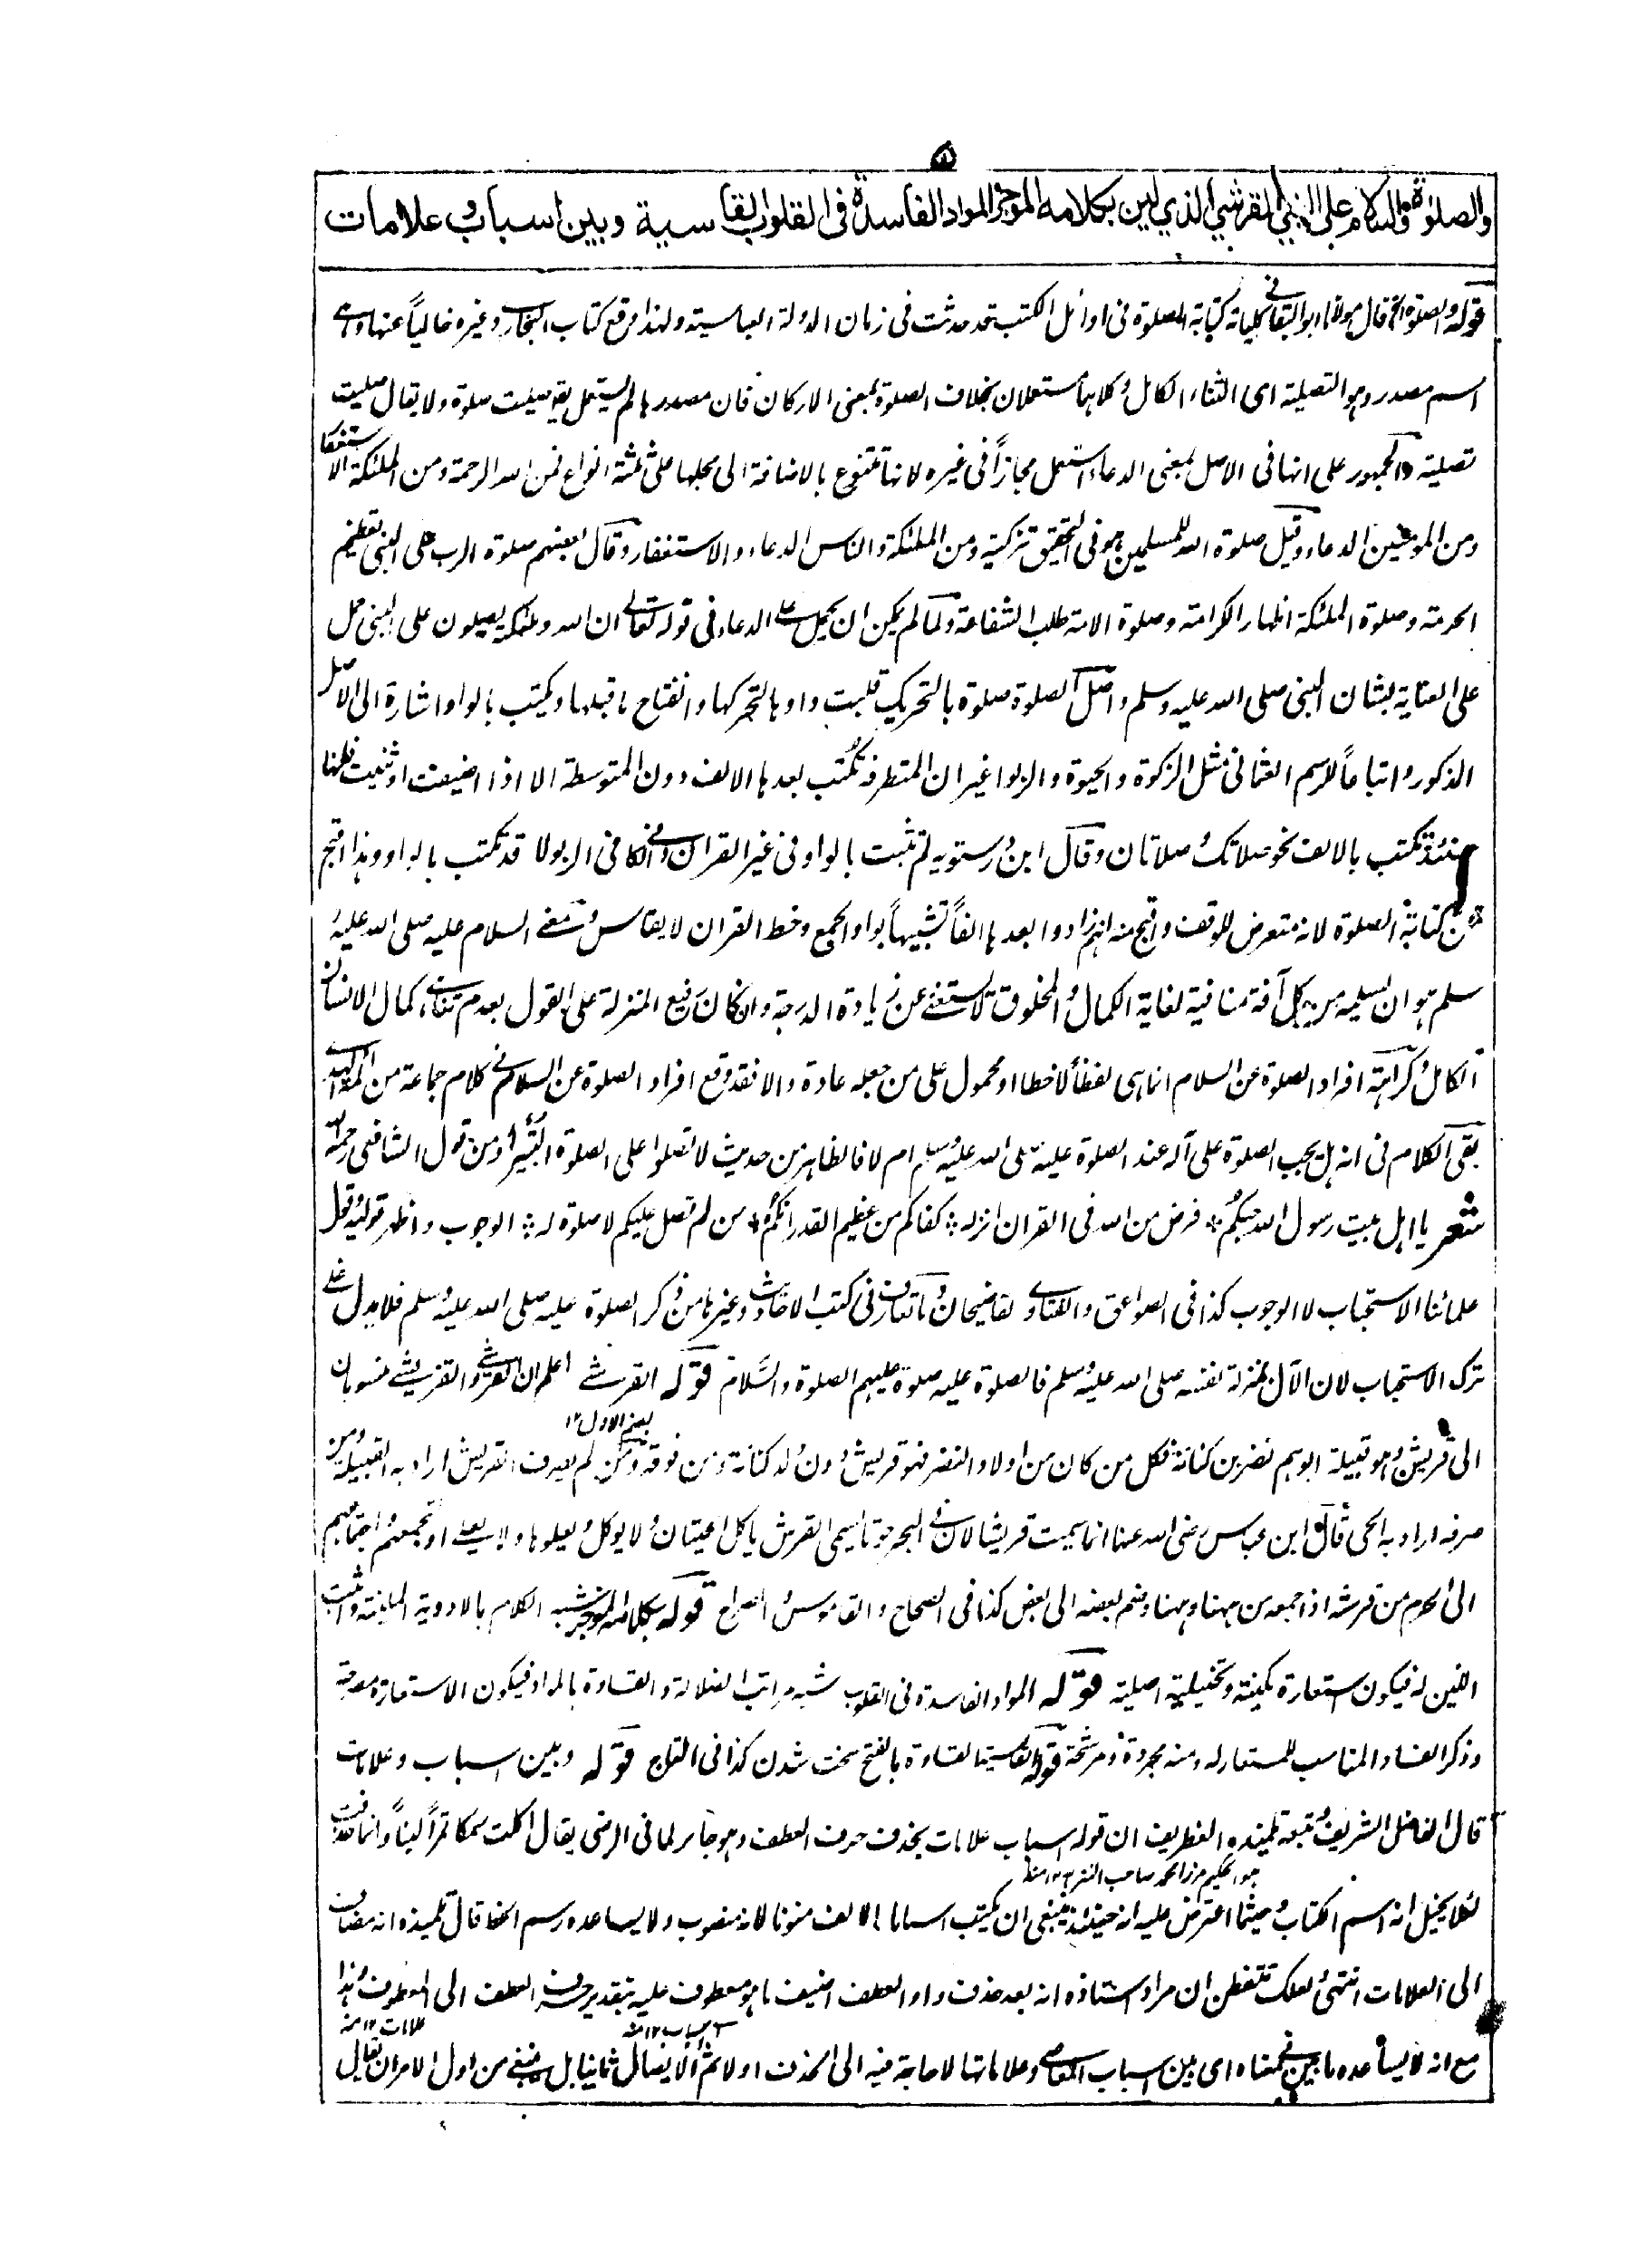 ٨
والصلوة والسلام على النبي القرشي الذي لين بكلامه الموجز المواد الفاسدة في القلوب القاسية وبين اسباب وعلامات
قوله والصلوة الخ قال مولانا ابو البقا في كلياته كتابة الصلوة في اوائل الكتب قد حدثت في زمان الدولة العباسية ولهذا وقع كتاب البخاري وغيره خالياً عنها وهي
اسم مصدر وهو التصلية اى الثناء الكامل وكلاهما مستعملان بخلاف الصلوة بمعنى الاركان فان مصدرها لم يستعمل يقو صليت صلوة ولا يقال صليت
تصلية والجمهور على انها في الاصل بمعنى الدعاء استعمل مجازاً في غيره لانها تتنوع بالاضافة الى محلها على ثلثة انواع فمن الله الرحمة ومن الملئكة الاستغفار
ومن المومنين الدعاء وقيل صلوة الله للمسلمين هو في التحقيق تزكية ومن الملئكة والناس الدعاء والاستغفار وقال بعضهم صلوة الرب على النبي تعظيم
الحرمة وصلوة الملئكة اظهار الكرامة وصلوة الامة طلب الشفاعة ولما لم يكن ان يحمل على الدعاء في قوله تعالى ان الله وملئكته يصلون على النبي حمل
على العناية بشان النبي صلى الله عليه وسلم واصل الصلوة صلوة بالتحريك قلبت واوها لتحركها وانفتاح ما قبلها ويكتب بالواو اشارة الى الاصل
المذكور واتباعاً لرسم العثماني مثل الزكوة والحيوة والربوا غير ان المتطرفة تكتب بعدها الالف دون المتوسطة الا اذا اضيفت او ثنيت فانها
حينئذ تكتب بالالف نحو صلاتك وصلاتان وقال ابن درستويه لم تثبت بالواو في غير القران وفي الكافي الربولا قد تكتب بالواو وهذا اقبح
من كتابة الصلوة لانه متعرض للوقف واقبح منه انهم زادوا بعدها الفاً تشبيهاً بواو الجمع وخط القران لا يقاس ومعنى السلام عليه صلى الله عليه و
سلم هو ان يسلمه من كل آفة منافية لغاية الكمال والمخلوق لا يستغنى عن زيادة الدرجة وان كان رفيع المنزلة على القول بعدم تناهى كمال الانسان
الكامل وكراهة افراد الصلوة عن السلام انما هى لفظاً لا خطا او محمول على من جعله عادة والا فقد وقع افراد الصلوة عن السلام في كلام جماعة من ائمة الهدى
بقى الكلام في انه هل يجب الصلوة على آله عند الصلوة عليه صلى الله عليه وسلم ام لا فالظاهر من حديث لا تصلوا على الصلوة البتيراء ومن قول الشافعي رحمه الله
شعر يا اهل بيت رسول الله حبكم * فرض من الله في القران انزله * كفاكم من عظيم القدر انكم * من لم تصل عليكم لا صلوة له * الوجوب واظهر قولي قول
علمائنا الاستحباب لا الوجوب كذا في الصواعق والفتاوى لقاضيخان وما تعارف في كتب الاحاديث وغيرها من ذكر الصلوة عليه صلى الله عليه وسلم فلا يدل على
ترك الاستحباب لان الآل بمنزلة نفسه صلى الله عليه وسلم فالصلوة عليه صلوة عليهم الصلوة والسلام قوله القرشي اعلم ان القرشي والقريشي منسوبان
بضم الاول ١٢
الى قريش وهو قبيلة ابوهم نضر بن كنانة فكل من كان من اولاد النضر فهو قريش دون ولد كنانة ومن فوقه ومن لم يصرف القريش اراد به القبيلة ومن
صرفه اراد به الحي قال ابن عباس رضى الله عنها انما سميت قريشا لان في البحر حوتا يسمى القرش ياكل الحيتان ولا يوكل ويعلوها ولا يعلى او تجمعهم واجتماعهم
الى الحرم من قرشه اذا جمعه من ههنا وههنا وضم بعضه الى بعض كذا في الصحاح والقاموس والصراح قوله بكلامه الموجز شبه الكلام بالادوية الملينة واثبت
اللين له فيكون استعارة مكنية وتخييلية اصلية قوله المواد الفاسدة في القلوب شبه مراتب الضلالة والقساوة بالمواد فيكون الاستعارة مصرحة
وذكر الفساد المناسب للمستعار له ومنه مجردة ومرشحة قوله القاسية القساوة بالفتح سخت شدن كذا في التاج قوله وبين اسباب وعلامات
قال الفاضل الشريف وتبعه تلميذه الغطريف ان قوله اسباب علامات بحذف حرف العطف وهو جائز لما في الرضى يقال اكلت سمكا تمراً لبناً وانما حذفت
هو الحكيم مرزا محمد صاحب ١٢ منه
لئلا يخيل انه اسم الكتاب وحيثما اعترض عليه انه حينئذ ينبغي ان يكتب اسبابا بالالف منونا لانه منصوب ولا يساعده رسم الخط قال تلميذه انه مضاف
الى العلامات انتهى ولعلك تتفطن ان مراد استاذه انه بعد حذف واو العطف اضيف ما هو معطوف عليه بتقدير حرف العطف الى المعطوف وهذا
اسباب ١٢ منه علامات ١٢ منه
مع انه لا يساعده ما بين في معناه اى بين اسباب المعاصى وعلاماتها لا حاجة فيه الى الحذف اولا ثم الايصال ثانيا بل ينبغي من اول الامر ان يقال